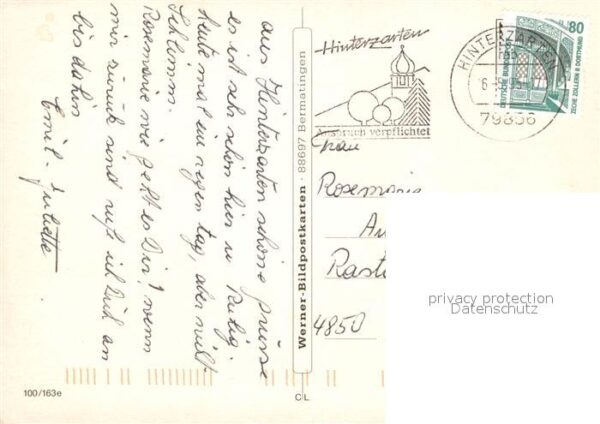 aus Hinterzarten schöne Grüsse
es ist sehr schön hier u. Ruhig.
heute mal ein regen tag, aber nicht
schlomm.
Rosmarie wie geht es Dir? wenn
wir zurück sind ruf ich Dich an
bis dahin
Emil - Juliette
Werner-Bildpostkarten · 88697 Bermatingen
100/163e
C/L
Hinterzarten
Anspruch verpflichtet
HINTERZARTEN
79856
80
DEUTSCHE BUNDESPOST
ZECHE ZOLLERN II DORTMUND
Frau
Rosemarie
Rast
4850
privacy protection
Datenschutz